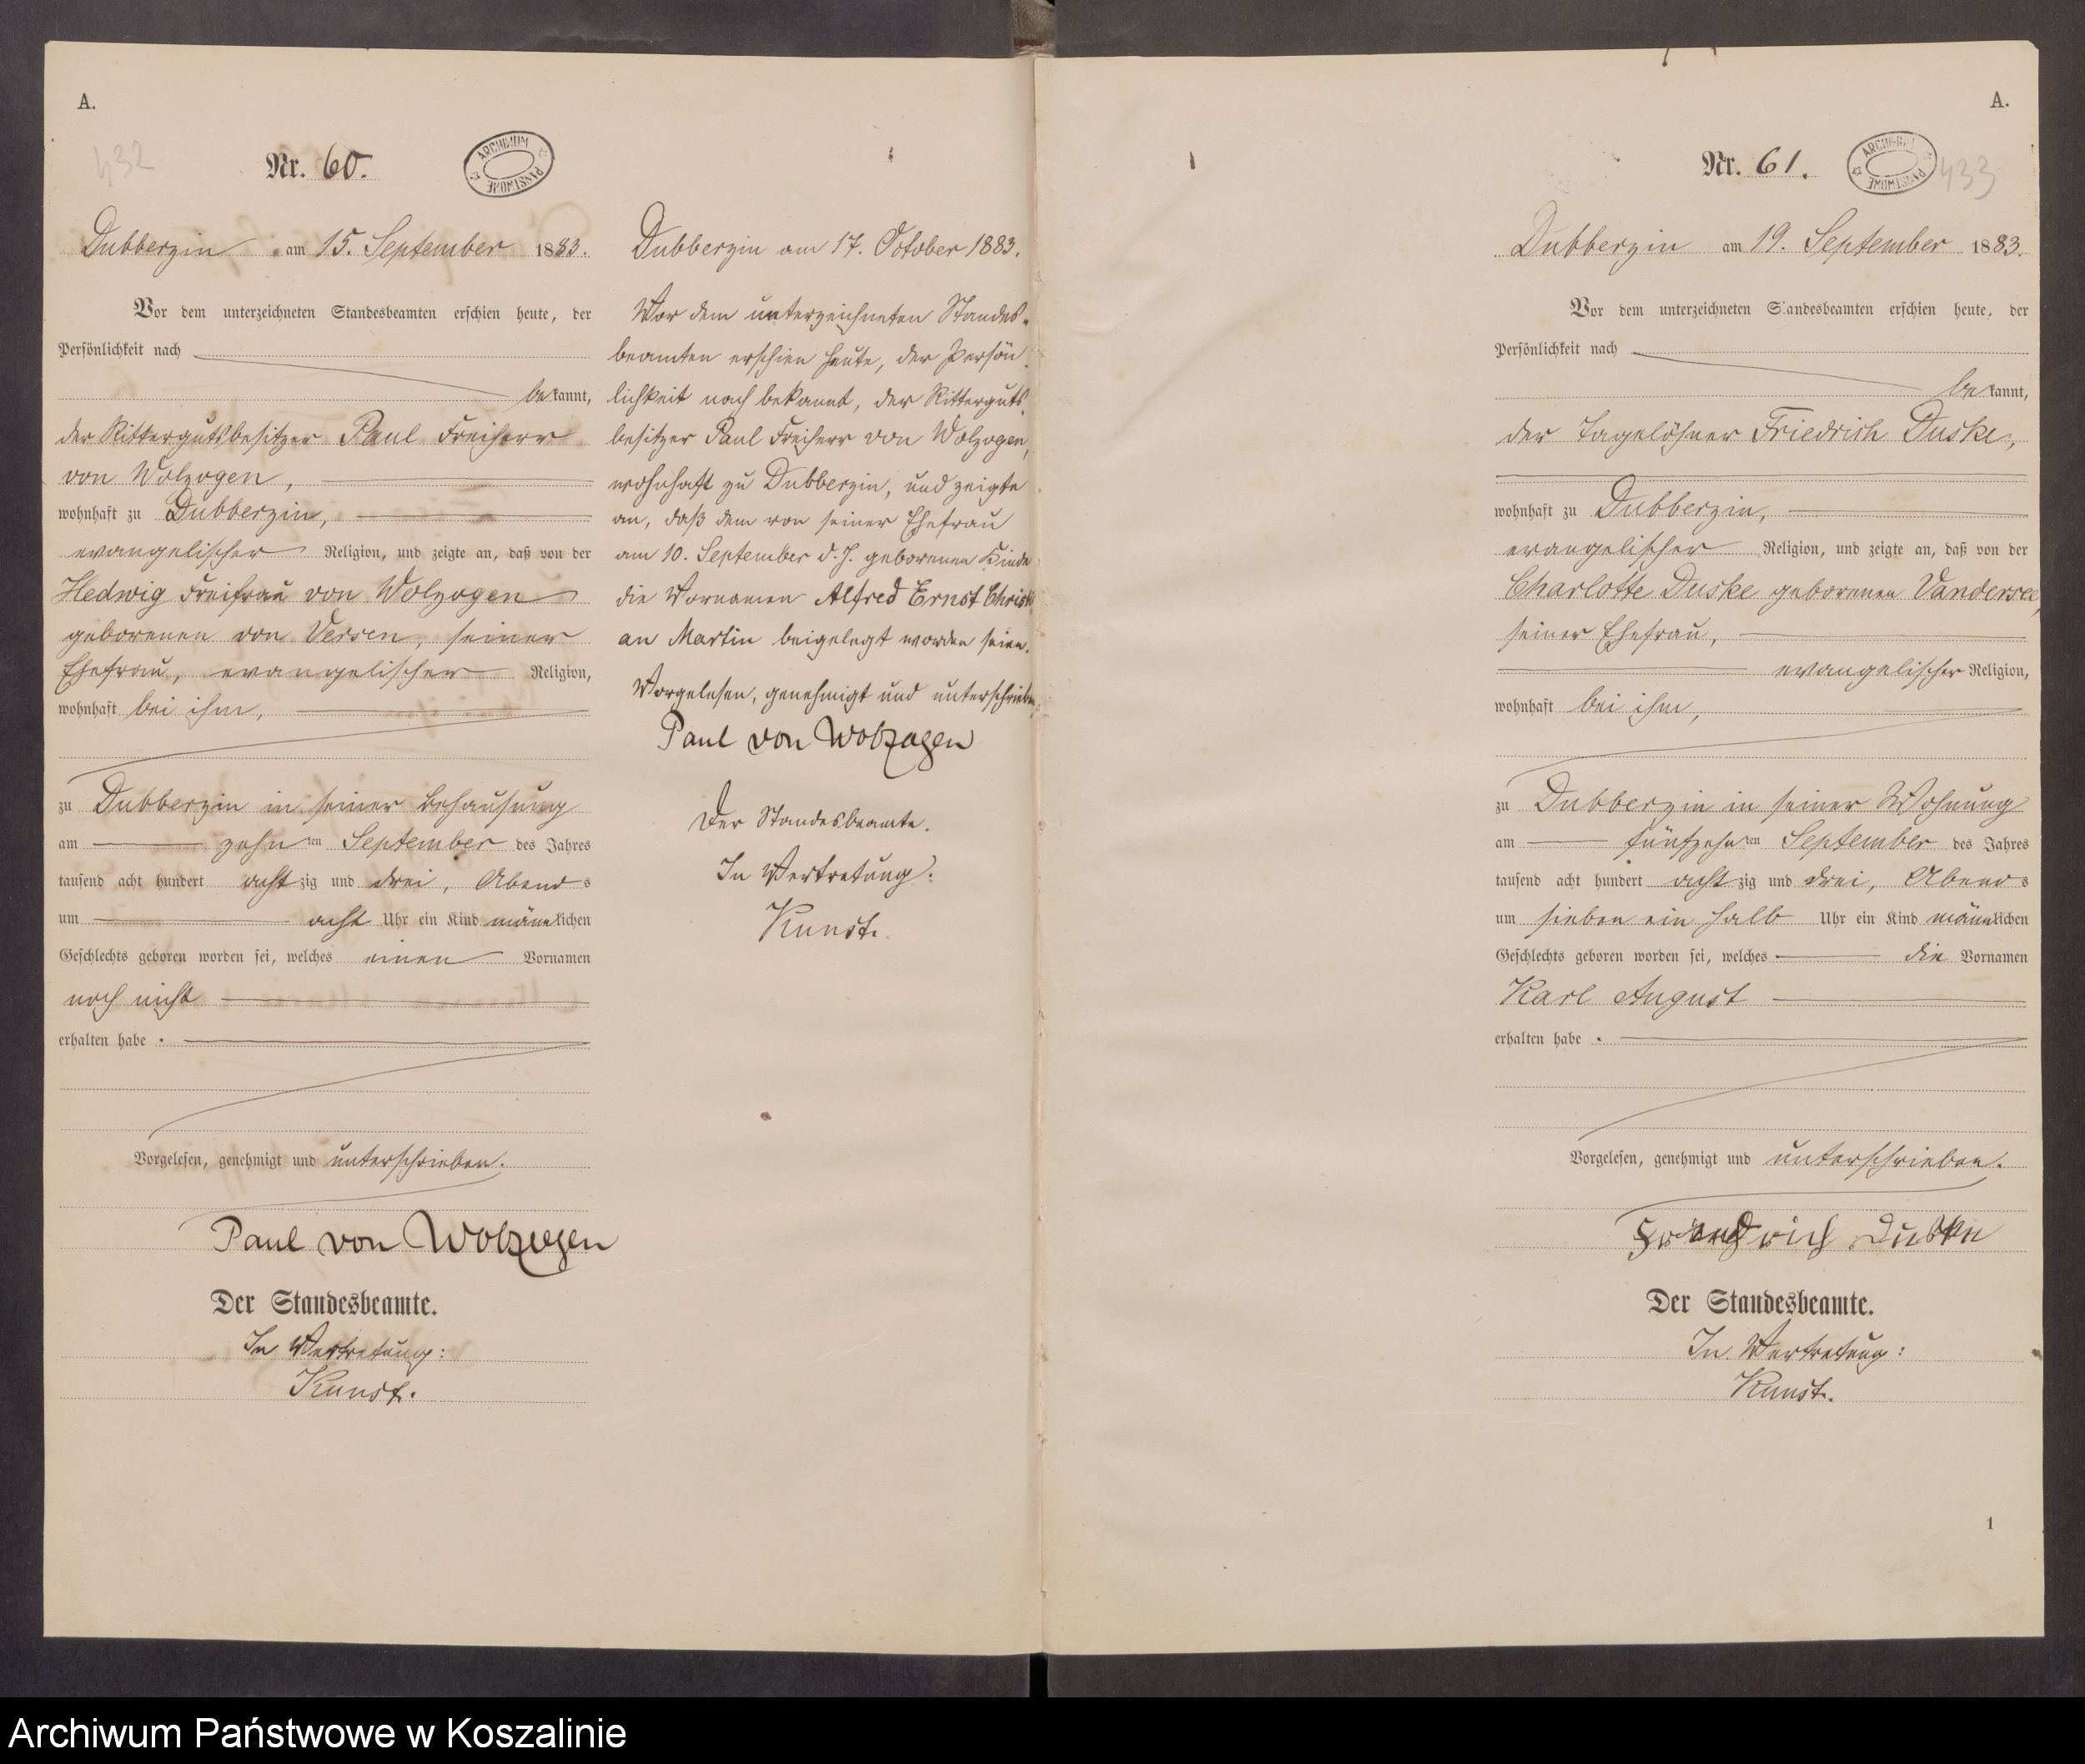 A.
432
Nr. 60.
ARCHIWUM PAŃSTWOWE
Dubberzin am 15. September 1883.
Vor dem unterzeichneten Standesbeamten erschien heute, der
Persönlichkeit nach
bekannt,
der Rittergutsbesitzer Paul Freiherr
von Wolzogen,
wohnhaft zu Dubberzin,
evangelischer Religion, und zeigte an, daß von der
Hedwig Freifrau von Wolzogen
geborenen von Versen, seiner
Ehefrau, evangelischer Religion,
wohnhaft bei ihm,
zu Dubberzin in seiner Behausung
am zehn ten September des Jahres
tausend acht hundert achtzig und drei, Abends
um acht Uhr ein Kind männlichen
Geschlechts geboren worden sei, welches einen Vornamen
noch nicht
erhalten habe.
Vorgelesen, genehmigt und unterschrieben.
Paul von Wolzogen
Der Standesbeamte.
In Vertretung:
Kunst.
Dubberzin am 17. October 1883.
Vor dem unterzeichneten Standes-
beamten erschien heute, der Persön-
lichkeit nach bekannt, der Ritterguts-
besitzer Paul Freiherr von Wolzogen,
wohnhaft zu Dubberzin, und zeigte
an, daß dem von seiner Ehefrau
am 10. September d. J. geborenen Kinde
die Vornamen Alfred Ernst Christi
an Martin beigelegt worden seien.
Vorgelesen, genehmigt und unterschrieben.
Paul von Wolzogen
Der Standesbeamte.
In Vertretung:
Kunst.
A.
Nr. 61.
ARCHIWUM PAŃSTWOWE
433
Dubberzin am 19. September 1883.
Vor dem unterzeichneten Standesbeamten erschien heute, der
Persönlichkeit nach
bekannt,
der Tagelöhner Friedrich Duske,
wohnhaft zu Dubberzin,
evangelischer Religion, und zeigte an, daß von der
Charlotte Duske geborenen Vandersee,
seiner Ehefrau,
evangelischer Religion,
wohnhaft bei ihm,
zu Dubberzin in seiner Wohnung
am fünfzehn ten September des Jahres
tausend acht hundert achtzig und drei, Abends
um sieben ein halb Uhr ein Kind männlichen
Geschlechts geboren worden sei, welches die Vornamen
Karl August
erhalten habe.
Vorgelesen, genehmigt und unterschrieben.
Friedrich Duske
Der Standesbeamte.
In Vertretung:
Kunst.
1
Archiwum Państwowe w Koszalinie